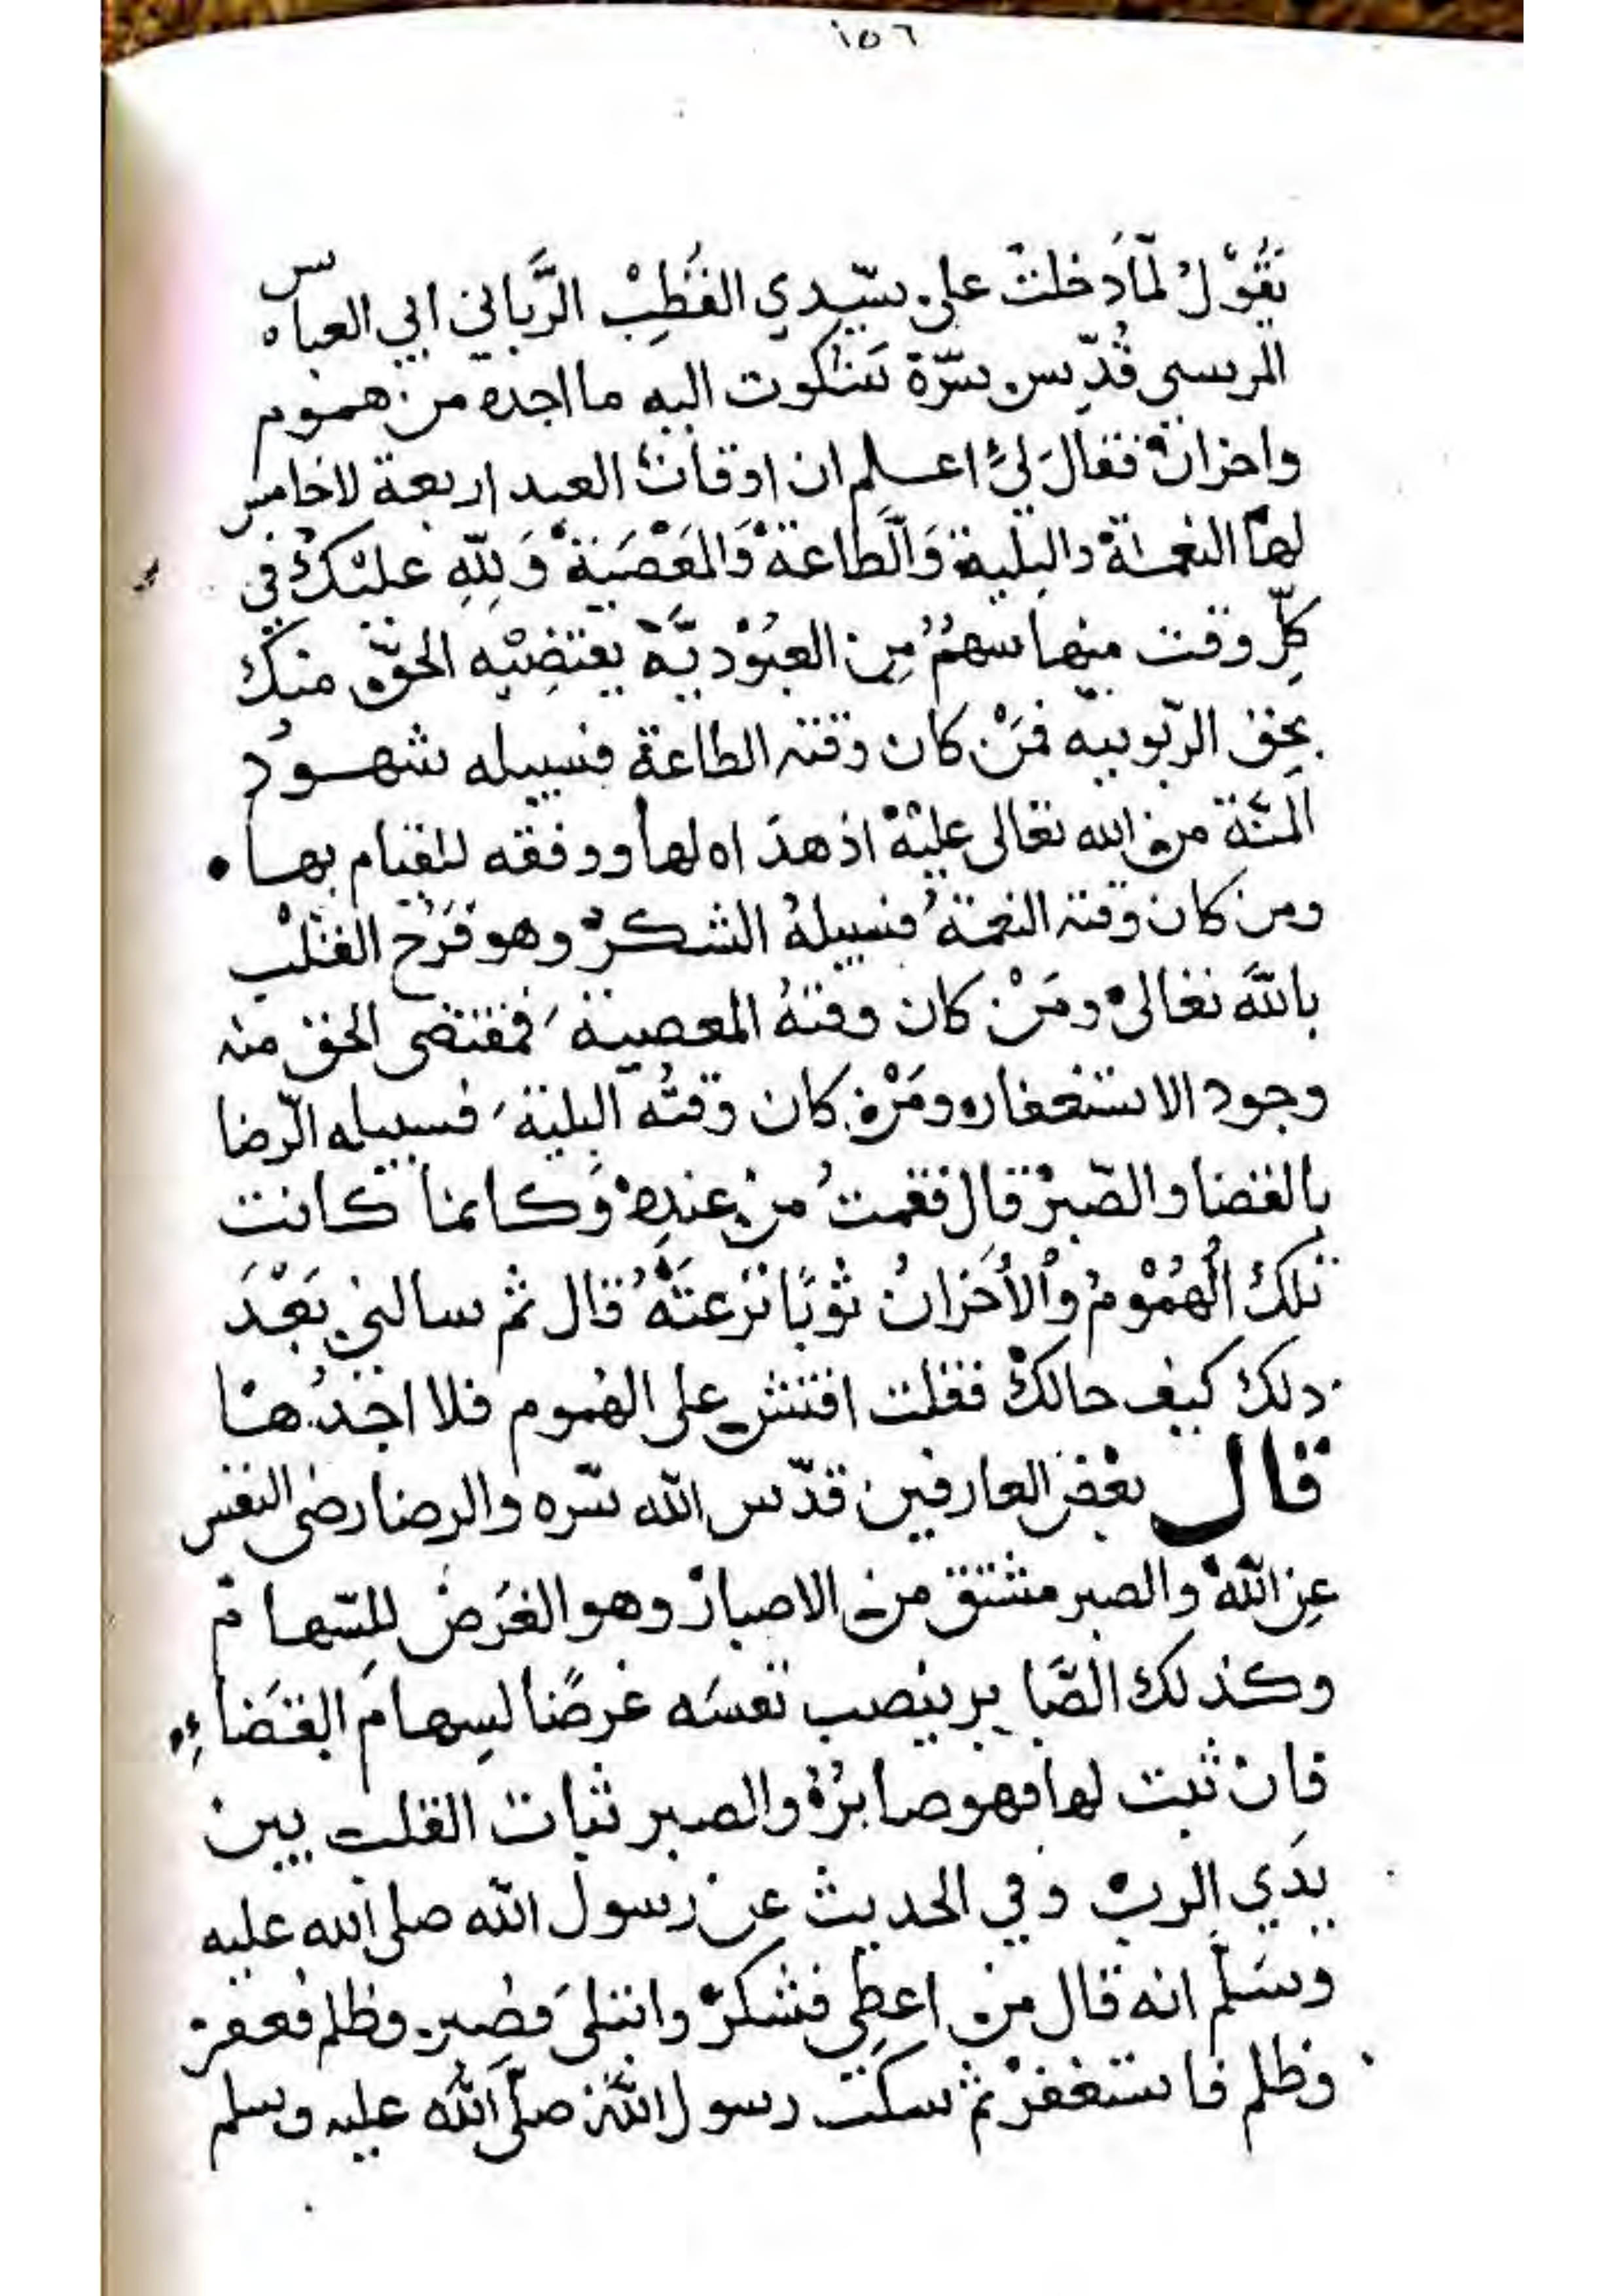 ١٥٦
يَقُوْلُ لمّا دَخلتُ على سيّدي القُطبْ الرَّباني ابي العباس
المرسي قُدّس سرّه شكوت اليه ما اجده من هموم
واحزان فقالَ لي اعلم ان اوقات العبد اربعة لا خامس
لها النعمة والبلية وَالطاعة وَالمَعْصَية وَلِلّهِ عليْكَ في
كلِّ وقت منها سهمٌ مِن العبُوْديَّة يقتضِيْه الحقّ منك
بحِق الرّبوبيه فمَنْ كان وقته الطاعة فسبيله شهودُ
المنَّة من الله تعالى عليْه اذ هدَاه لها ووفقه للقيام بها •
ومن كان وقته النعمة فسبيلهُ الشكرْ وهو فَرَحُ القلْب
باللّه تعالى ومَنْ كان وقتهُ المعصية فمقتضى الحق منه
وجود الاستغفار ومَنْ كان وقتُه البلية فسبيله الرّضا
بالقضا والصّبرْ قال فقمتُ من عندِه وَكانما كانت
تلكَ الْهُمُوْمُ وَالْأَحْزانُ ثوْبًا نَزَعتَهُ قال ثم سالني بَعْدَ
ذلكَ كيف حالك فقلت افتش على الهُموم فلا اجدُها
قال بعْض العارفين قدّس الله سّره والرضا رضى النفس
عنِ اللّه والصبر مشتق من الاصبار وهو الغَرَضُ للسّهام
وكذلك الصَّابر ينصب نفسَه غرضًا لسِهامَ القَضاءِ
فان ثبت لها فهو صابرٌ والصبر ثبات القلب بين
يدَي الرب وفي الحديث عن رسول الله صلى الله عليه
وسَلّم انه قال من اعطِي فشكرْ وابتلىَ فصبر وظلم فغفر
وظلم فاستغفرْ ثم سكت رسول اللّه صلّى الله عليه وسلم